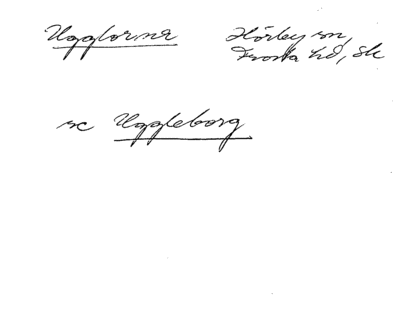 Ugglorna Hörby sn,
Frosta hd, Sk
se Uggleborg